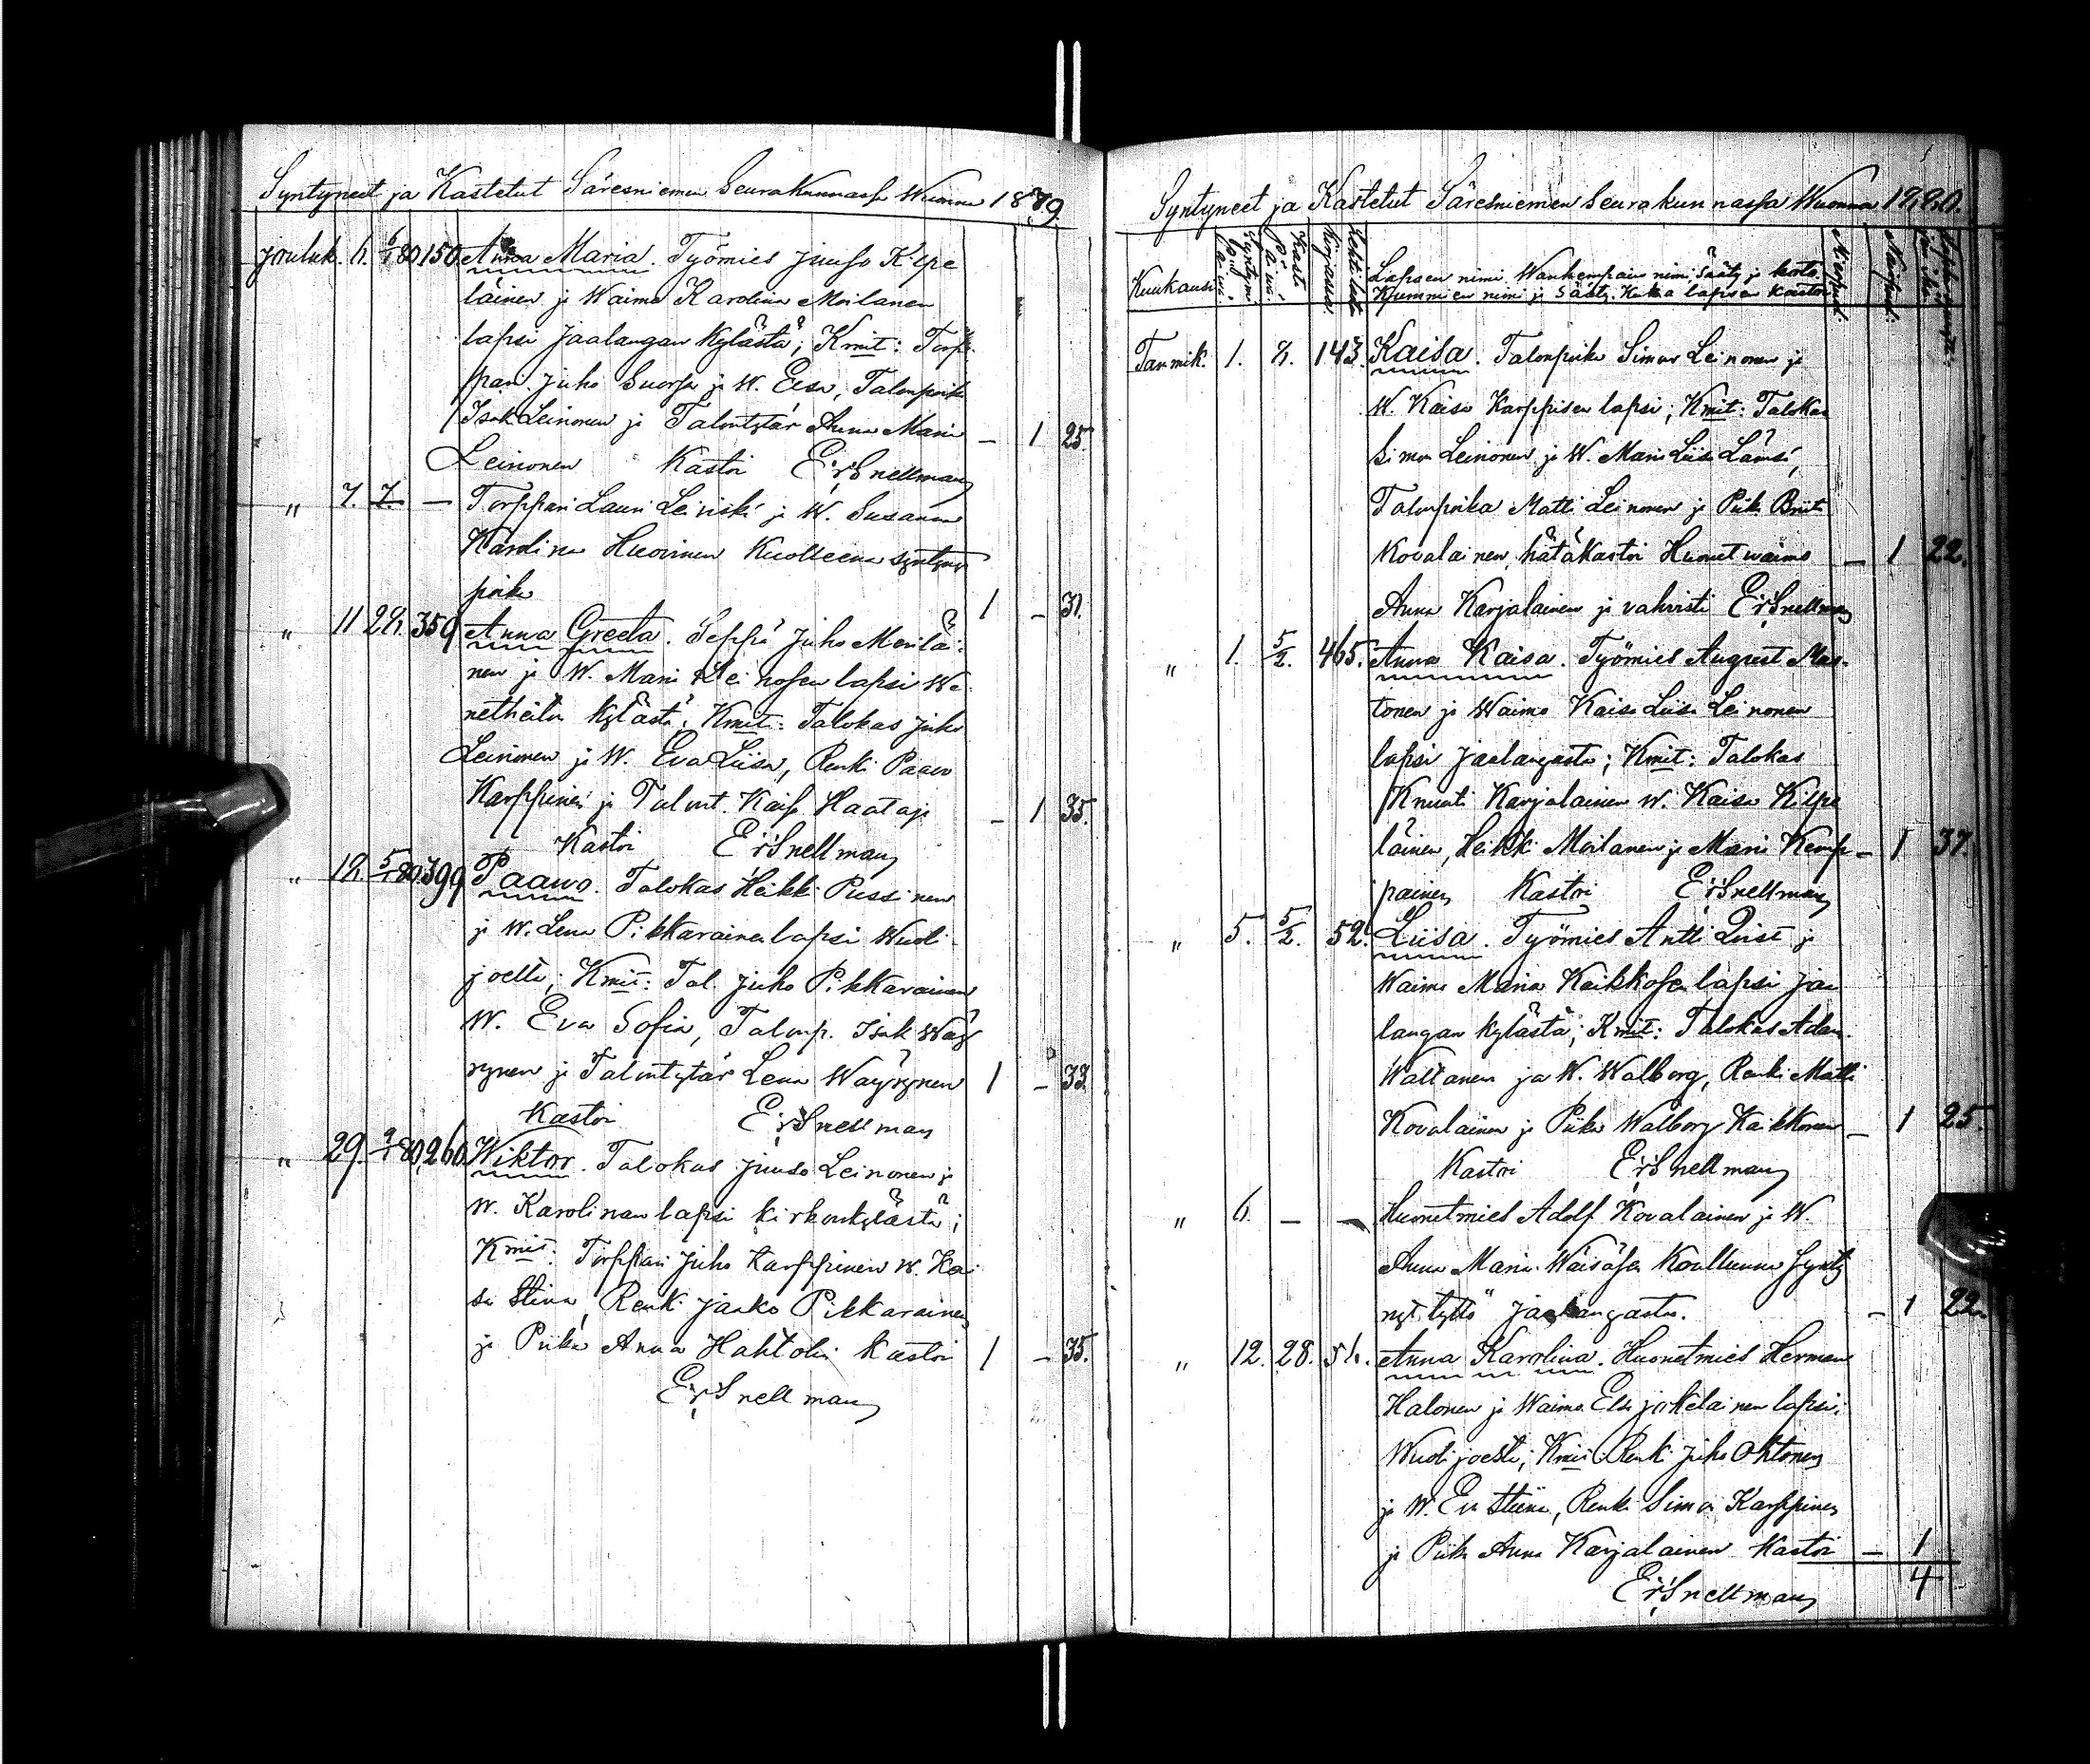 Syntyneet ja Kastetut Säresniemen Seurakunnassa Wuonna 1879.
jouluk. 6. 6/1 80 150 Anna Maria. Työmies Juuso Kilpe
läinen ja Waimo Karolina Moilanen
lapsi Jaalangan kylästä; Kmit: Torp-
pari Juho Suorsa ja W. Eeva, Talonpoika
Isak Leinonen ja Talontytär Anna Maria — 1 25.
Leinonen Kastoi E: Snellman
" 7. 7. — Torppari Lauri Leiviskä ja W. Susanna
Karolina Huovinen Kuolleena syntynyt
poika 1 — 31.
" 11 28. 359 Anna Greeta. Seppä Juho Meriläi-
nen ja W. Maria Leinosen lapsi We
netheiton kylästä; Kmit: Talokas Juho
Leinonen ja W. Eva Liisa, Renki Paavo
Karppinen ja Talont. Kaisa Haataja — 1 35.
Kastoi E: Snellman
" 12. 5/1 80. 399 Paawo. Talokas Heikki Pussinen
ja W. Lena Pikkaraisen lapsi Wuoli
joelta; Kmit: Tal. Juho Pikkarainen
W. Eva Sofia, Talonp. Isak Wäy
rynen ja Talontytär Lena Wäyrynen 1 — 33.
Kastoi E: Snellman
" 29. 9/1 80, 260. Wiktor. Talokas Juuso Leinonen ja
W. Karolinan lapsi kirkonkylästä;
Kmit: Torppari Juho Karppinen W. Kai
sa Stina, Renki Jaako Pikkarainen
ja Piika Anna Hahtola Kastoi 1 — 35.
E: Snellman
Syntyneet ja Kastetut Säresniemen Seurakunnassa Wuonna 1880.
Kuukausi Syntymä Päivä. Kaste Päivä. Lehti laste kirjassa. Lapsen nimi, Wanhempain nimi, Sääty ja koto. Miespuol. Naispuol.
Kummien nimi ja Sääty. Kuka lapsen kastoi
Tammik. 1. 7. 143. Kaisa. Talonpoika Simon Leinonen ja
W. Kaisa Karppisen lapsi; Kmit: Talokas
Simon Leinonen ja W. Maria Liisa Lämsä,
Talonpoika Matti Leinonen ja Piika Briita
Kovalainen, hätäkastoi Huonet waimo — 1 22.
Anna Karjalainen ja vahvisti E: Snellman
" 1. 5/2. 465. Anna Kaisa. Työmies August Mus-
tonen ja Waimo Kaisa Liisa Leinonen
lapsi Jaalangasta; Kmit: Talokas
Knuuti Karjalainen W. Kaisa Kilpe
läinen, Heikki Moilanen ja Maria Kemp — 1 37.
painen Kastoi E: Snellman
" 5. 5/2. 52. Liisa. Työmies Antti Quist ja
Waimo Maria Kaikkosen lapsi Jaa
langan kylästä; Kmit: Talokas Adam
Waltanen ja W. Walborg, Renki Matti
Kovalainen ja Piika Walborg Kaikkonen — 1 25.
Kastoi E: Snellman
" 6. — — Huonetmies Adolf Kovalainen ja W.
Anna Maria Wäisäsen Kuolleena synty
nyt tyttö Jaalangasta. — 1 22.
" 12. 28. 56. Anna Karolina. Huonetmies Herman
Halonen ja Waimo Elsa Jokelainen lapsi
Wuolijoesta; Kmit: Renki Juho Ohtonen
ja W. Eva Stina, Renki Simo Karppinen
ja Piika Anna Karjalainen Kastoi — 1
E: Snellman 4